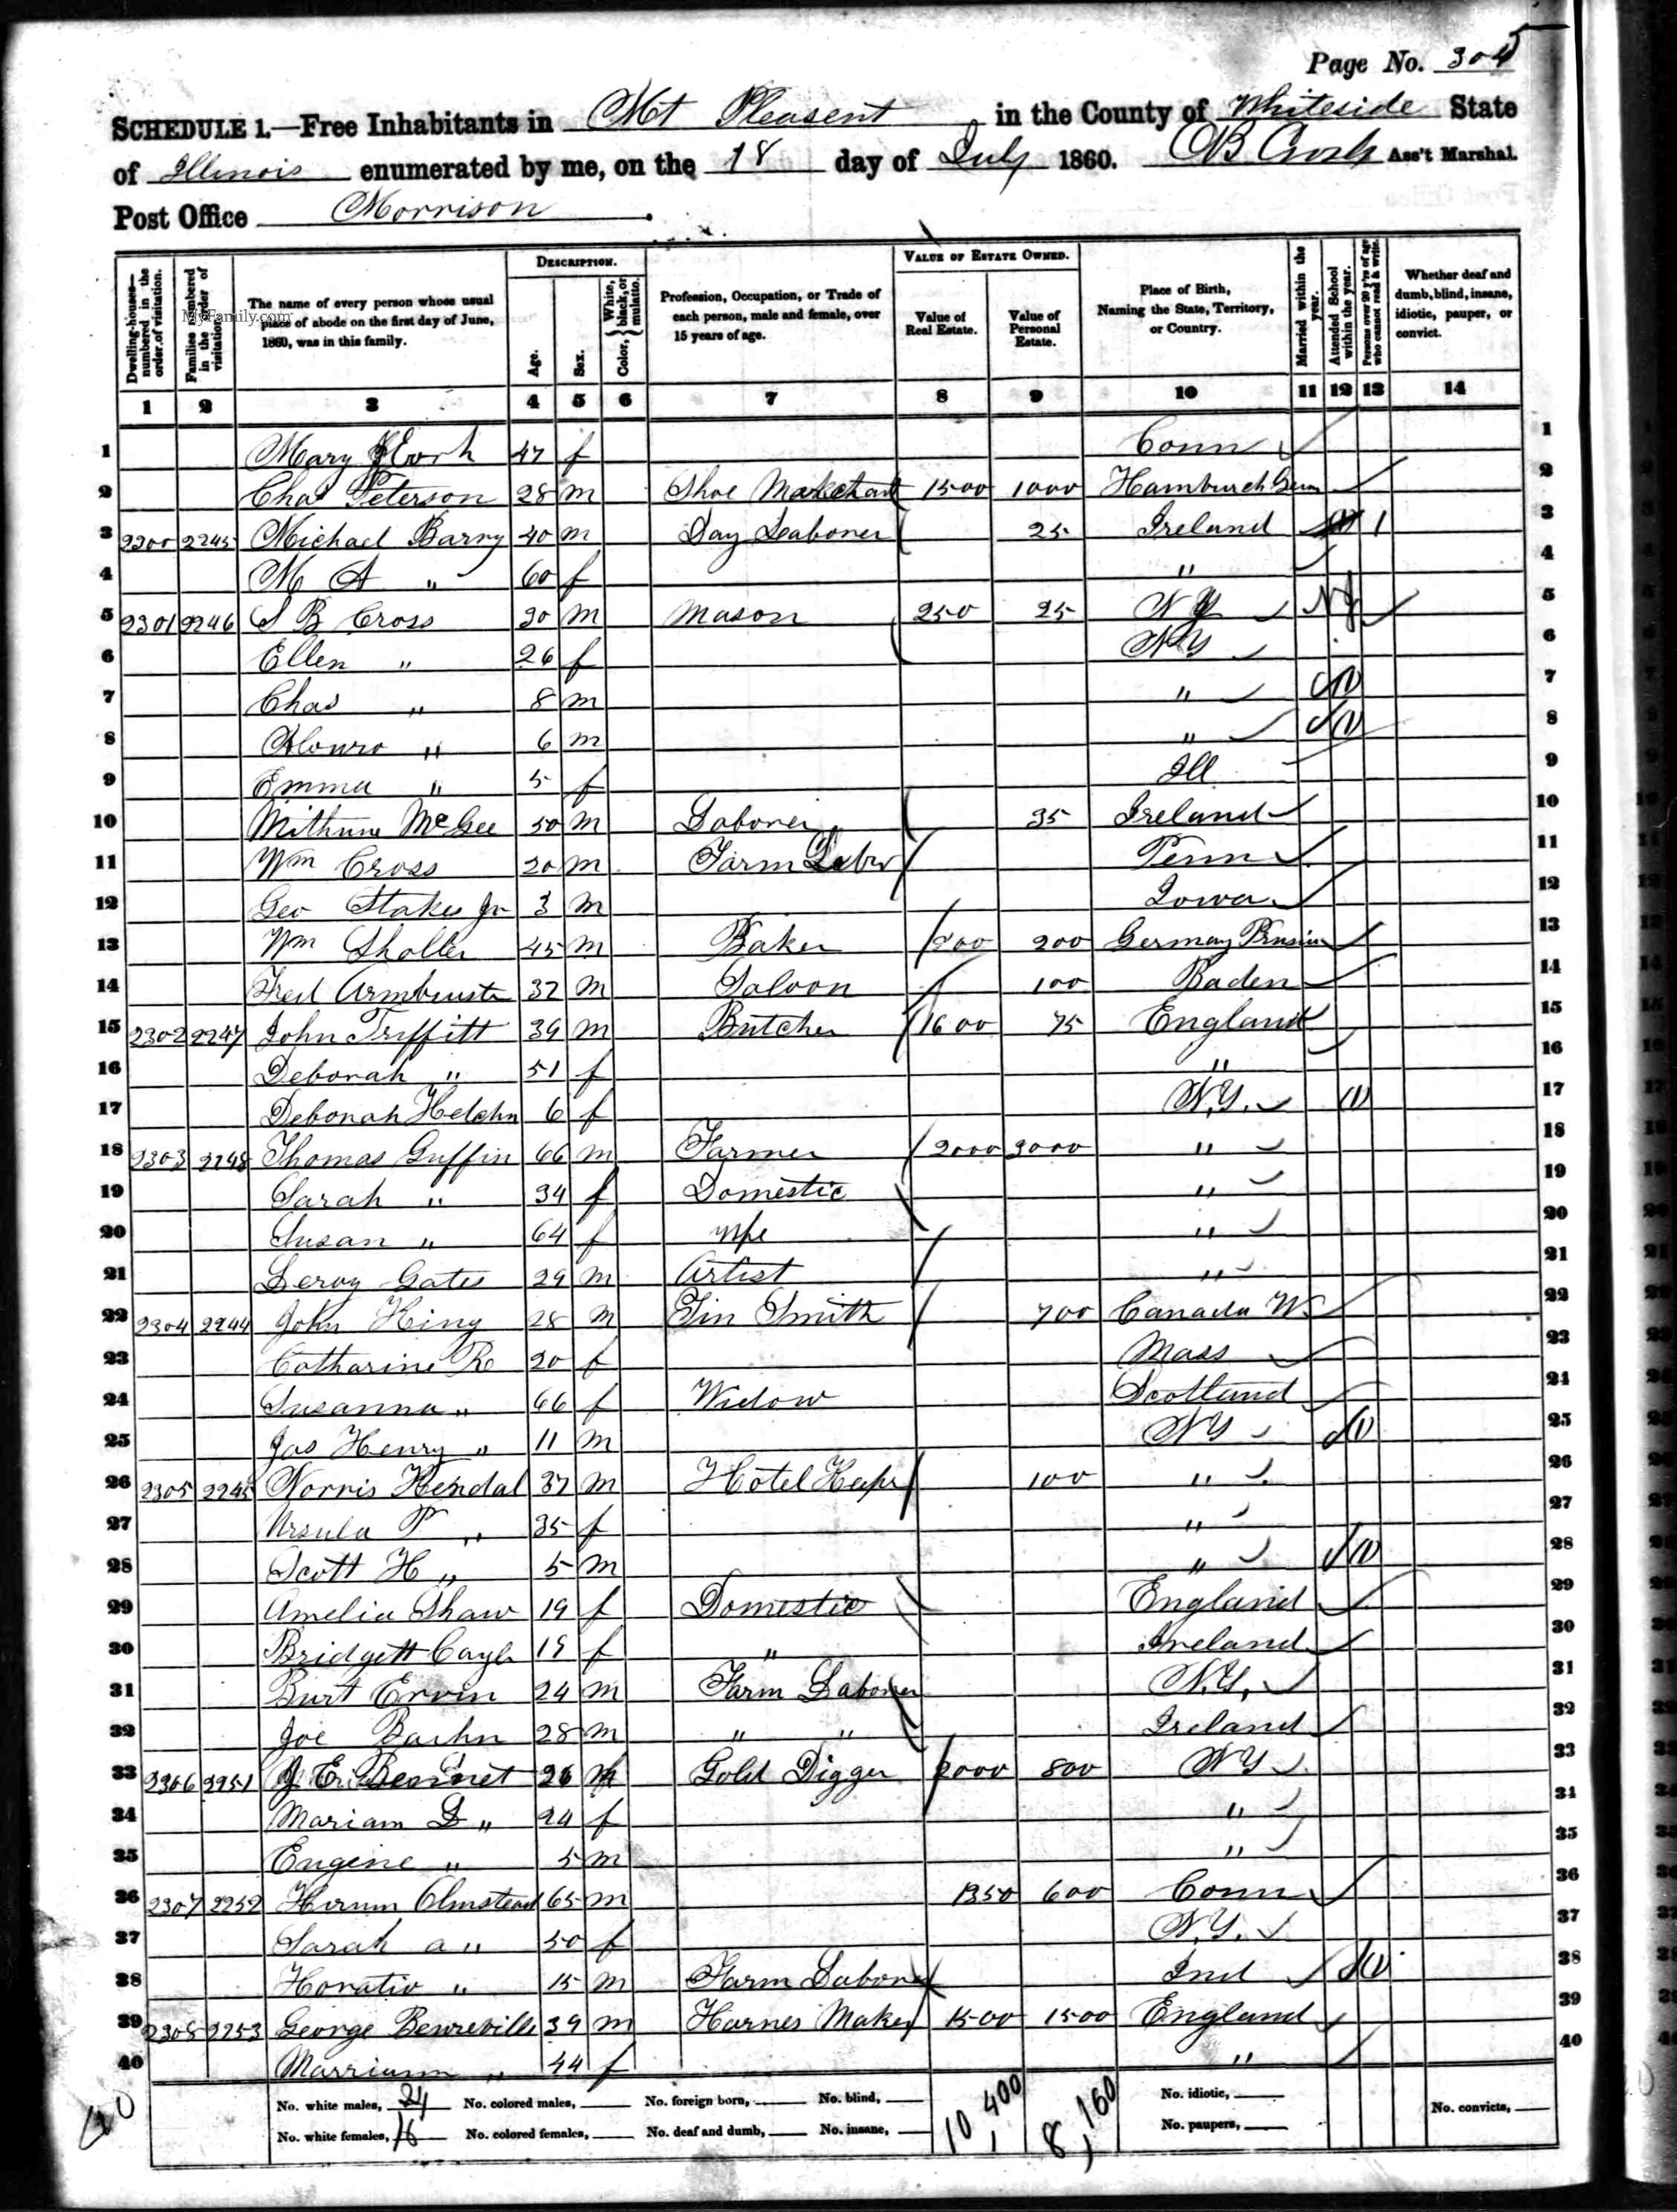 Page No. 304
SCHEDULE 1.—Free Inhabitants in Mt Pleasent in the County of Whiteside State
of Illinois enumerated by me, on the 18 day of July 1860. Ass't Marshal.
Post Office Morrison.
MyFamily.com
Dwelling-houses—numbered in the order of visitation.
Families numbered in the order of visitation.
The name of every person whose usual place of abode on the first day of June, 1860, was in this family.
DESCRIPTION.
Age.
Sex.
Color, White, black, or mulatto.
Profession, Occupation, or Trade of each person, male and female, over 15 years of age.
VALUE OF ESTATE OWNED.
Value of Real Estate.
Value of Personal Estate.
Place of Birth, Naming the State, Territory, or Country.
Married within the year.
Attended School within the year.
Persons over 20 y'rs of age who cannot read & write.
Whether deaf and dumb, blind, insane, idiotic, pauper, or convict.
1 2 3 4 5 6 7 8 9 10 11 12 13 14
1 Mary 47 f Conn 1
2 Chas Peterson 28 m Shoe 1500 1000 Hamburch 2
3 2300 2245 Michael Barry 40 m Day Laborer 25 Ireland 1 3
4 M A " 60 f " 4
5 2301 2246 S B Cross 30 m Mason 250 25 N Y N Y 5
6 Ellen " 26 f N Y 6
7 Chas " 8 m " 1 7
8 " 6 m " 1 8
9 Emma " 5 f Ill 9
10 McGee 50 m Laborer 35 Ireland 10
11 Wm Cross 20 m Farm Penn 11
12 Geo Stakes Jr 3 m Iowa 12
13 Wm Sholler 45 m Baker 200 200 Germany Prusia 13
14 Fred 32 m Saloon 100 Baden 14
15 2302 2247 John Triffitt 39 m Butcher 1600 75 England 15
16 Deborah " 51 f " 16
17 Deborah 6 f N.Y. 1 17
18 2303 2248 Thomas Guffin 66 m Farmer 2000 3000 " 18
19 Sarah " 34 f Domestic " 19
20 Susan " 64 f " 20
21 Leroy Gates 29 m Artist " 21
22 2304 2244 John King 28 m Tin Smith 700 Canada W. 22
23 Catharine R 20 f Mass 23
24 Susanna " 66 f Widow Scotland 24
25 Jas Henry " 11 m N Y 1 25
26 2305 2245 Norris Kendal 37 m Hotel Keepr 100 " 26
27 Ursula P " 35 f " 27
28 Scott H " 5 m " 1 28
29 Amelia Shaw 19 f Domestic England 29
30 Bridgett 18 f " Ireland 30
31 Burt Ervin 24 m Farm Laborer N.Y. 31
32 Joe 28 m " " Ireland 32
33 2306 2251 J E Bennet 26 m Gold Digger 2000 800 N Y 33
34 Mariam D " 24 f " 34
35 Eugene " 5 m " 35
36 2307 2252 Hirum Olmstead 65 m 1350 600 Conn 36
37 Sarah a " 50 f N.Y. 37
38 Horatio " 15 m Farm Laborer Ind 1 38
39 2308 2253 George 39 m Harnes Maker 1500 1500 England 39
40 Marrium " 44 f " 40
40
No. white males, 24 No. colored males, No. foreign born, No. blind, 10,400 8,160 No. idiotic, No. convicts,
No. white females, 16 No. colored females, No. deaf and dumb, No. insane, No. paupers,